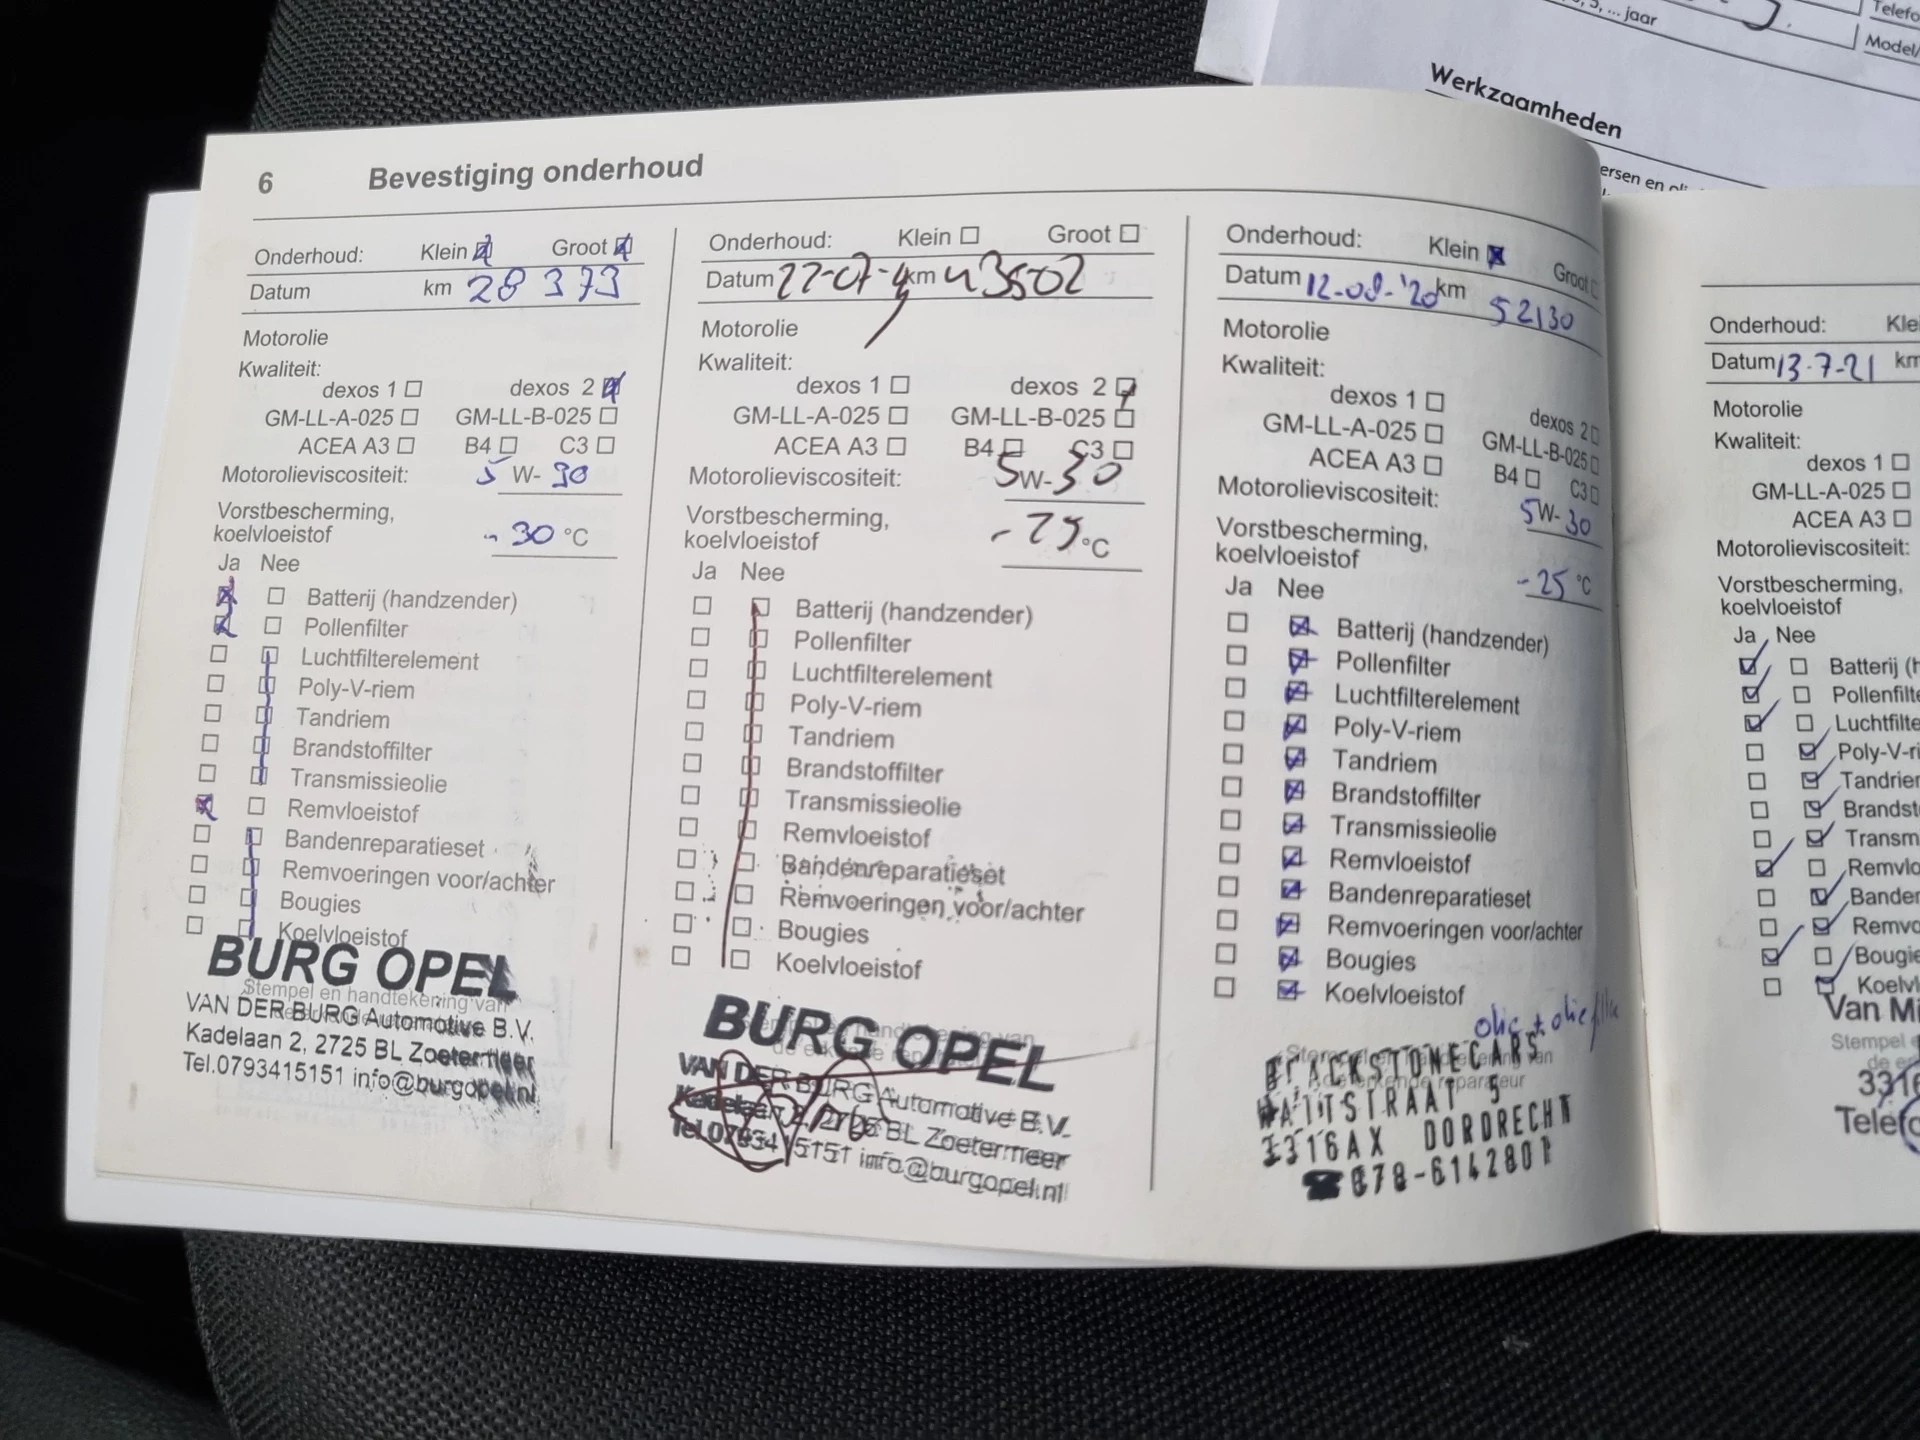 6 Bevestiging onderhoud
Onderhoud: Klein Groot
Datum km 28 373
Motorolie
Kwaliteit:
dexos 1 dexos 2
GM-LL-A-025 GM-LL-B-025
ACEA A3 B4 C3
Motorolieviscositeit: 5 W- 30
Vorstbescherming,
koelvloeistof - 30 °C
Ja Nee
Batterij (handzender)
Pollenfilter
Luchtfilterelement
Poly-V-riem
Tandriem
Brandstoffilter
Transmissieolie
Remvloeistof
Bandenreparatieset
Remvoeringen voor/achter
Bougies
Koelvloeistof
BURG OPEL
Stempel en handtekening van
VAN DER BURG Automotive B.V.
Kadelaan 2, 2725 BL Zoetermeer
Tel.0793415151 info@burgopel.nl
Onderhoud: Klein Groot
Datum 22-07- km 43502
Motorolie
Kwaliteit:
dexos 1 dexos 2
GM-LL-A-025 GM-LL-B-025
ACEA A3 B4 C3
Motorolieviscositeit: 5W-30
Vorstbescherming,
koelvloeistof -25 °C
Ja Nee
Batterij (handzender)
Pollenfilter
Luchtfilterelement
Poly-V-riem
Tandriem
Brandstoffilter
Transmissieolie
Remvloeistof
Bandenreparatieset
Remvoeringen voor/achter
Bougies
Koelvloeistof
BURG OPEL
VAN DER BURG Automotive B.V.
Kadelaan 2, 2725 BL Zoetermeer
Tel.0793415151 info@burgopel.nl
Onderhoud: Klein Groot
Datum 12-08-'20 km 52130
Motorolie
Kwaliteit:
dexos 1 dexos 2
GM-LL-A-025 GM-LL-B-025
ACEA A3 B4 C3
Motorolieviscositeit: 5W-30
Vorstbescherming,
koelvloeistof -25 °C
Ja Nee
Batterij (handzender)
Pollenfilter
Luchtfilterelement
Poly-V-riem
Tandriem
Brandstoffilter
Transmissieolie
Remvloeistof
Bandenreparatieset
Remvoeringen voor/achter
Bougies
Koelvloeistof
olie + olie filter
BLACKSTONECARS
WATTSTRAAT 5
3316AX DORDRECHT
☎078-6142801
Onderhoud: Kle
Datum 13-7-21 km
Motorolie
Kwaliteit:
dexos 1
GM-LL-A-025
ACEA A3
Motorolieviscositeit:
Vorstbescherming,
koelvloeistof
Ja Nee
Batterij (h
Pollenfilte
Luchtfilte
Poly-V-ri
Tandrier
Brandst
Transm
Remvlo
Banden
Remvo
Bougie
Koelvl
Van Mi
Stempel e
3316
Telef
jaar
Telefo
Model/
Werkzaamheden